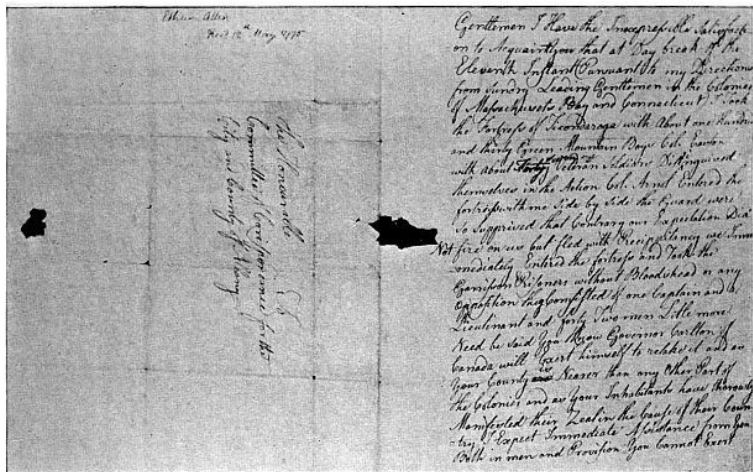 Ethan Allen
Recd 12th May 1775
To
the Honourable
Committee of Corrispondence for the
City and County of Albany
Gentlemen I Have the Inexpressible Satisfacti
on to Acquaint you that at Day break of the
Eleventh Instant Pursuant to my Directions
from Sundry Leading Gentlemen in the Colonies
of Massachusets Bay and Connecticut I Took
the Fortress of Ticonderoga with About one Hundred
and thirty Green Mountain Boys Col. Easton
with about Veteran Soldiers Distinguised
themselves in the Action Col. Arnol Entered the
fortress with me Side by Side the Guard were
So Supprised that Contrary our Expectation Did
Not fire on us but fled with we Imm
mediately Entered the fortress and Took the
Garrison Prisoners without Bloodshead or any
Opposition they Consisted of one Captain and a
Lieutenant and forty Two men Little more
Need be Said You Know Governor Carlton of
Canada will Exert himself to retake it and as
Your County is Nearer than any Other Part of
the Colonies and as Your Inhabitants have thoroly
Manifested their Zeal in the Cause of their Coun
try I Expect Immediate Assistance from You
Both in men and Provision You Cannot Exert